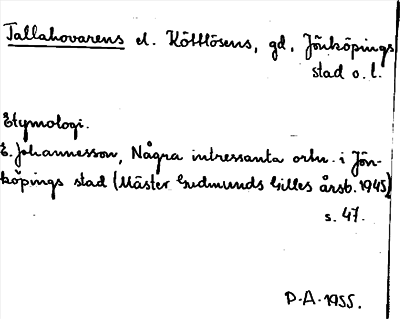 Tallahovarens el. Köttlösens, gd, Jönköpings
stad o. l.
Etymologi.
E. Johannesson, Några intressanta ortn. i Jön-
köpings stad (Mäster Gudmunds Gilles årsb. 1945)
s. 47.
D-A-1955.